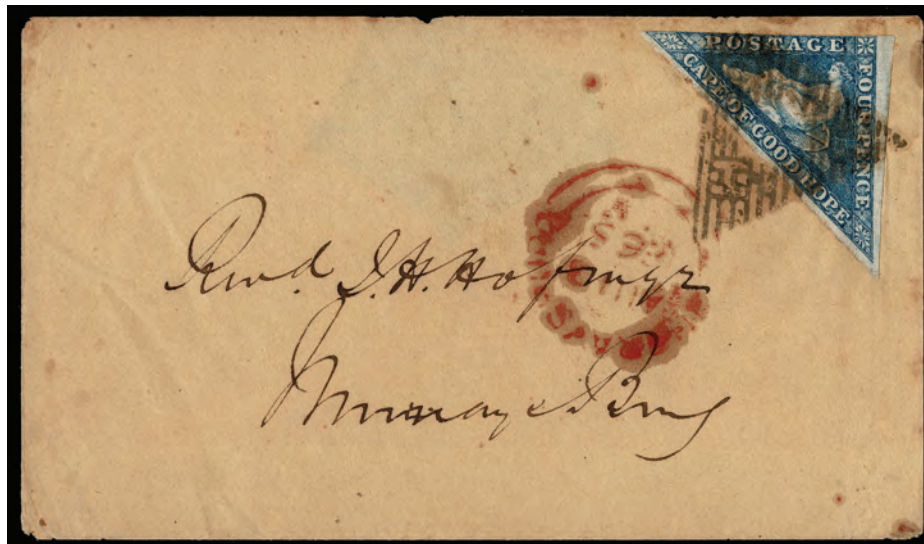 POSTAGE
FOUR PENCE
CAPE OF GOOD HOPE
Revd. J. H. Hofmeyr
Murraysburg